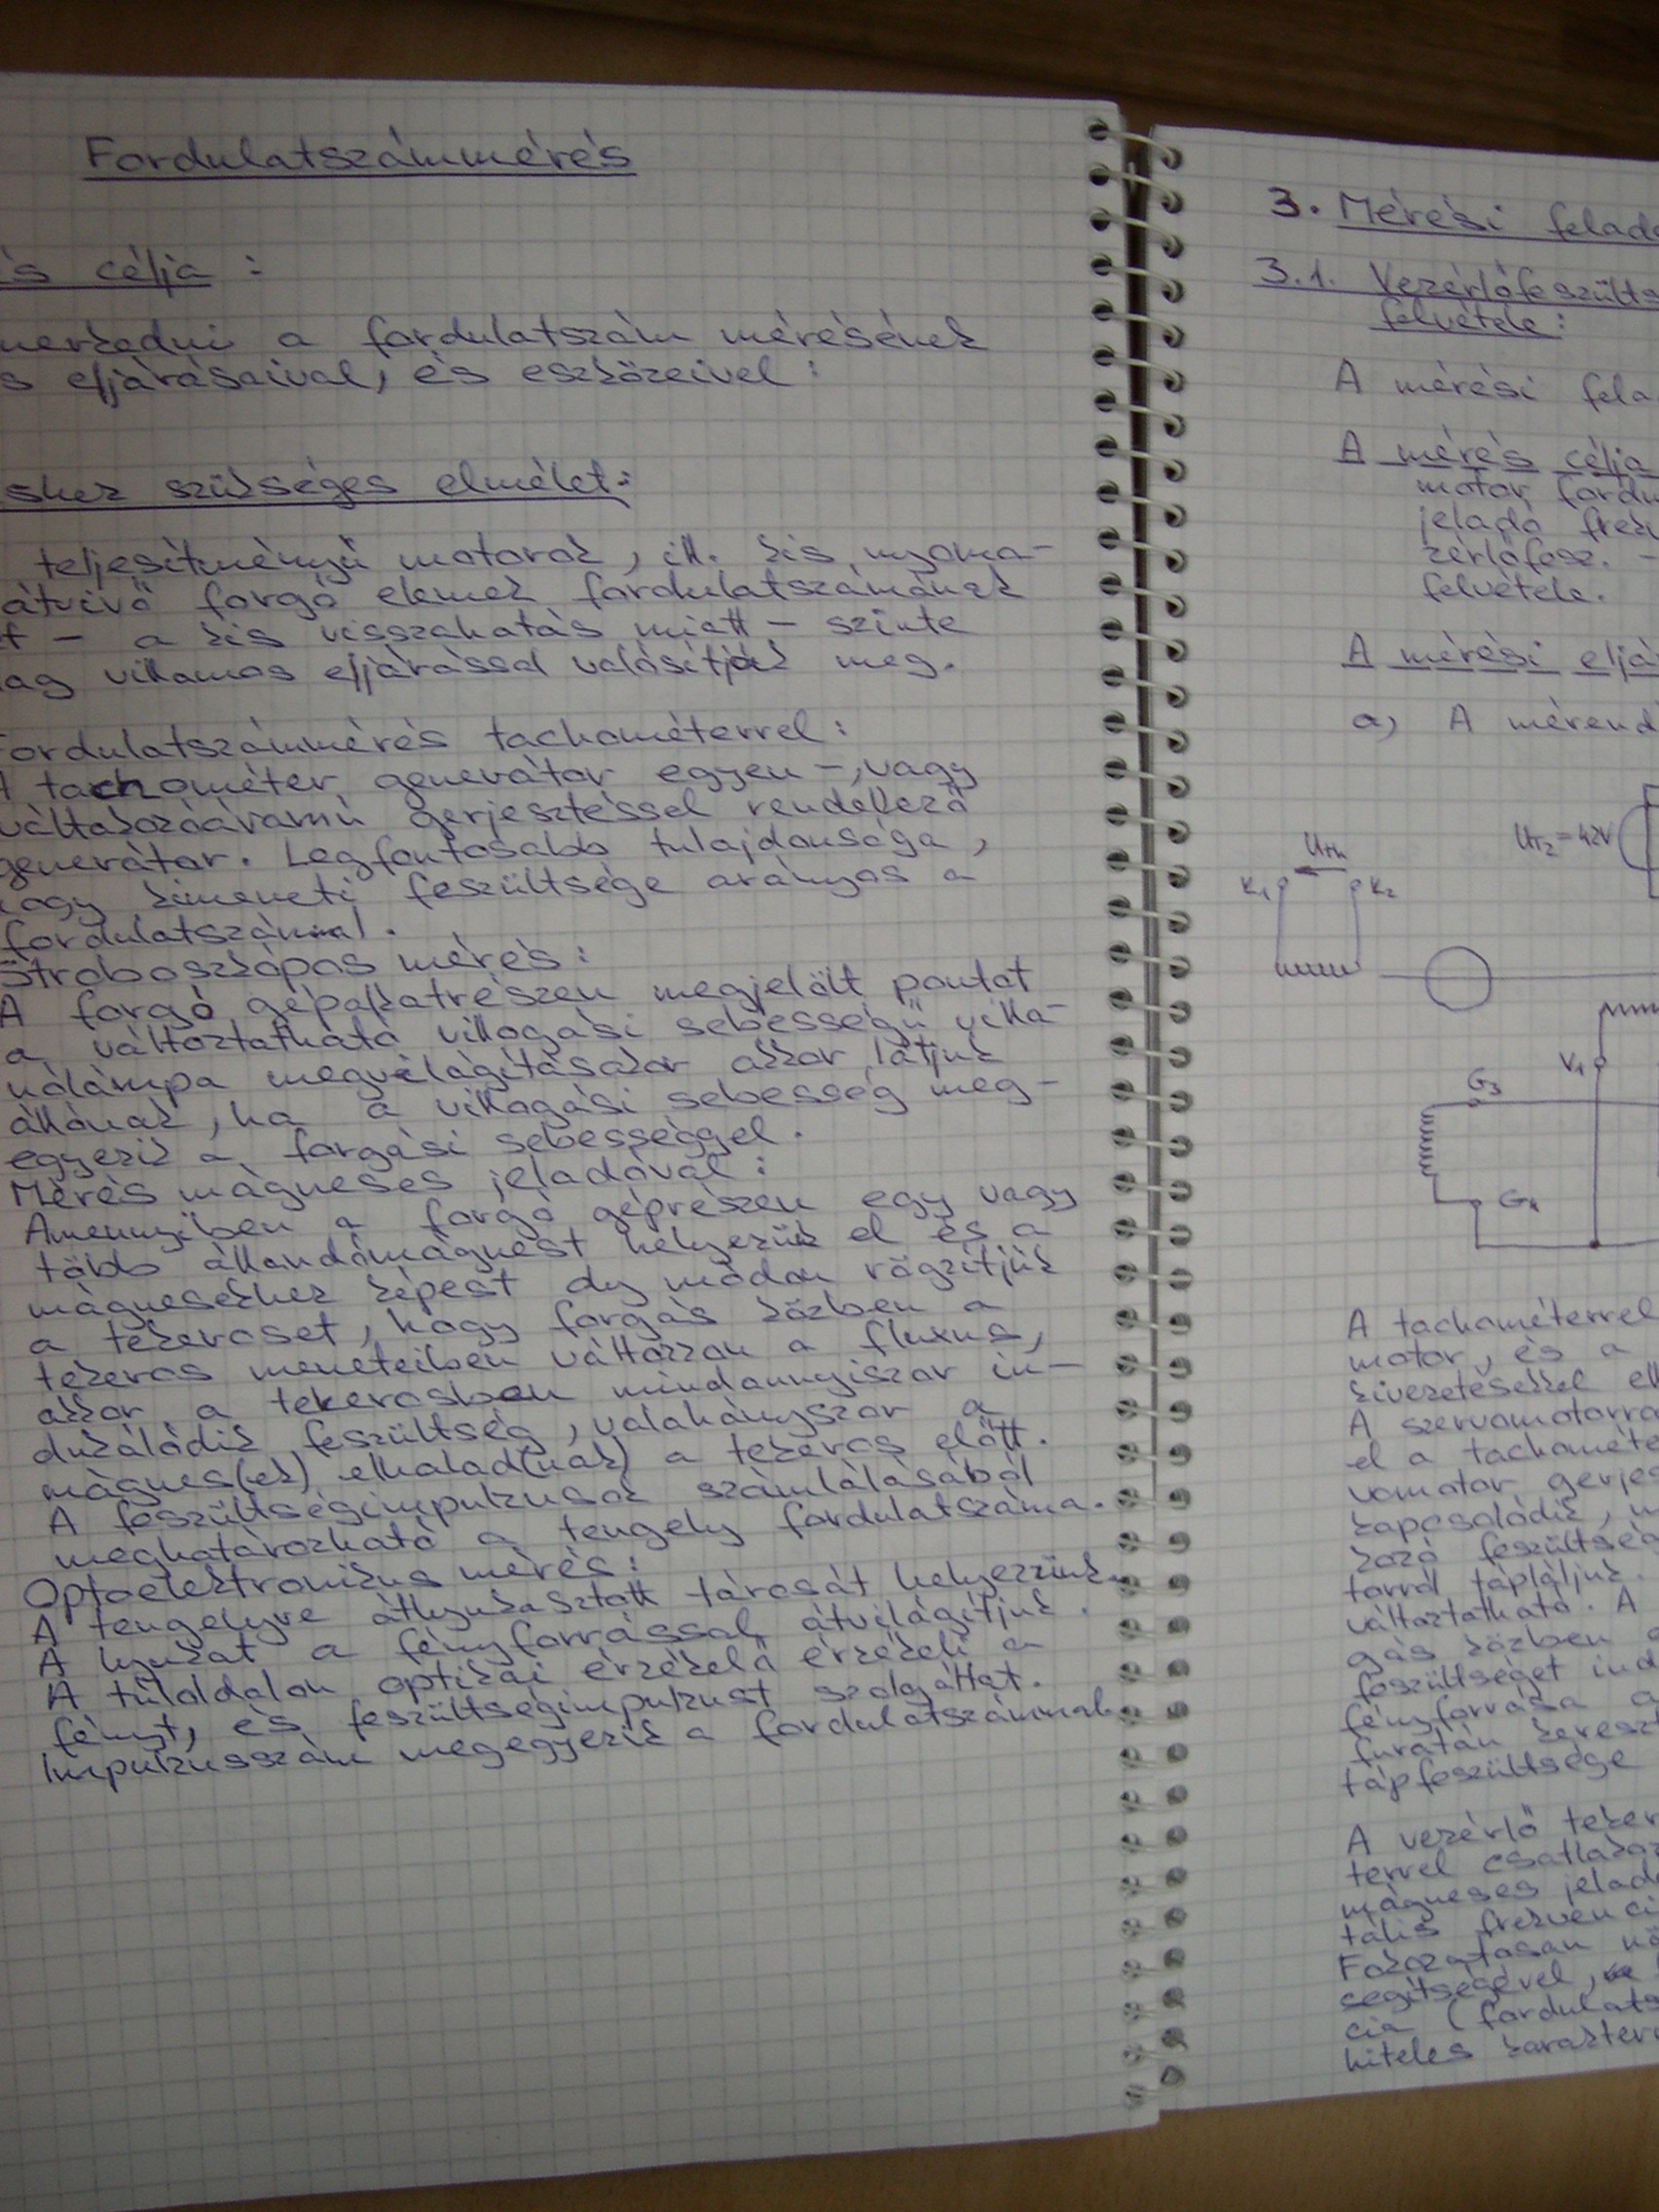 Fordulatszámmérés
és célja :
merkedni a fordulatszám mérésének
s eljárásaival, és eszközeivel :
shez szükséges elmélet:
teljesítményű motorok, ill. kis nyoma-
átvivő forgó elemek fordulatszámának
t - a kis visszahatás miatt - szinte
lag villamos eljárással valósítják meg.
Fordulatszámmérés tachométerrel :
A tachométer generátor egyen-, vagy
váltakozóáramú gerjesztéssel rendelkező
generátor. Legfontosabb tulajdonsága,
hogy kimeneti feszültsége arányos a
fordulatszámmal.
Stroboszkópos mérés :
A forgó gépalkatrészen megjelölt pontot
a változtatható villogási sebességű villa-
nólámpa megvilágításakor akkor látjuk
állónak, ha a villogási sebesség meg-
egyezik a forgási sebességgel.
Mérés mágneses jeladóval :
Amennyiben a forgó géprészen egy vagy
több állandómágnest helyezünk el és a
mágnesekhez képest oly módon rögzítjük
a tekercset, hogy forgás közben a
tekercs meneteiben változzon a fluxus,
akkor a tekercsben mindannyiszor in-
dukálódik feszültség, valahányszor a
mágnes(ek) elhalad(nak) a tekercs előtt.
A feszültségimpulzusok számlálásából
meghatározható a tengely fordulatszáma.
Optoelektronikus mérés :
A tengelyre átlyukasztott tárcsát helyezzünk.
A lyukat a fényforrással átvilágítjuk.
A túloldalon optikai érzékelő érzékeli a
fényt, és feszültségimpulzust szolgáltat.
Impulzusszám megegyezik a fordulatszámmal.
3. Mérési felad
3.1. Vezérlőfeszülts
felvétele :
A mérési fela
A mérés célja
motor fordu
jeladó frek
zérlőfesz. -
felvétele.
A mérési eljá
a, A mérend
UT2 = 42V
UTh
K1 K2
V1
G3
G4
A tachométerrel
motor, és a
kivezetésekkel el
A szervomotorra
el a tachométe
vomotor gerjes
kapcsolódik, m
kozó feszültség
torral tápláljuk.
változtatható. A
gás közben a
feszültséget ind
fényforrása a
furatán kereszt
tápfeszültsége
A vezérlő teker
terrel csatlakoz
mágneses jelad
tális frekvenci
Fokozatosan nö
segítségével,
cia (fordulats
hiteles karakter